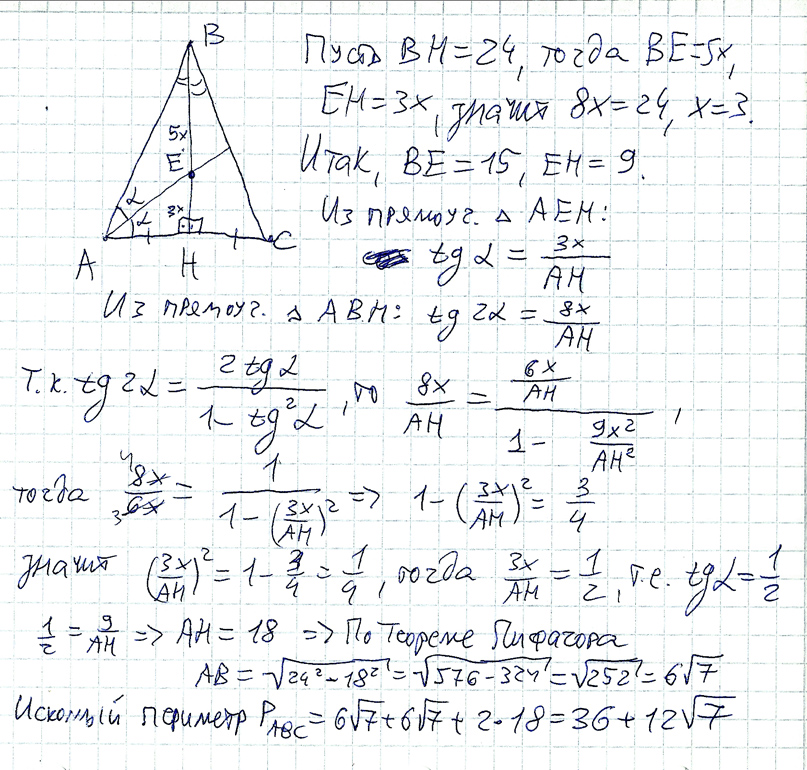 B
Пусть BH=24, тогда BE=5x,
EH=3x, значит 8x=24, x=3.
5x
Итак, BE=15, EH=9.
E
Из прямоуг. △ AEH:
α
α
3x
A
H
C
tg α = 3x/AH
Из прямоуг. △ ABH: tg 2α = 8x/AH
Т.к. tg 2α = 2 tg α / (1 - tg²α), то 8x/AH = (6x/AH) / (1 - 9x²/AH²),
тогда 4 8x / 3 6x = 1 / (1 - (3x/AH)²) => 1 - (3x/AH)² = 3/4
значит (3x/AH)² = 1 - 3/4 = 1/4, тогда 3x/AH = 1/2, т.е. tg α = 1/2
1/2 = 9/AH => AH = 18 => По Теореме Пифагора
AB = √(24² - 18²) = √(576 - 324) = √252 = 6√7
Искомый периметр P_ABC = 6√7 + 6√7 + 2·18 = 36 + 12√7